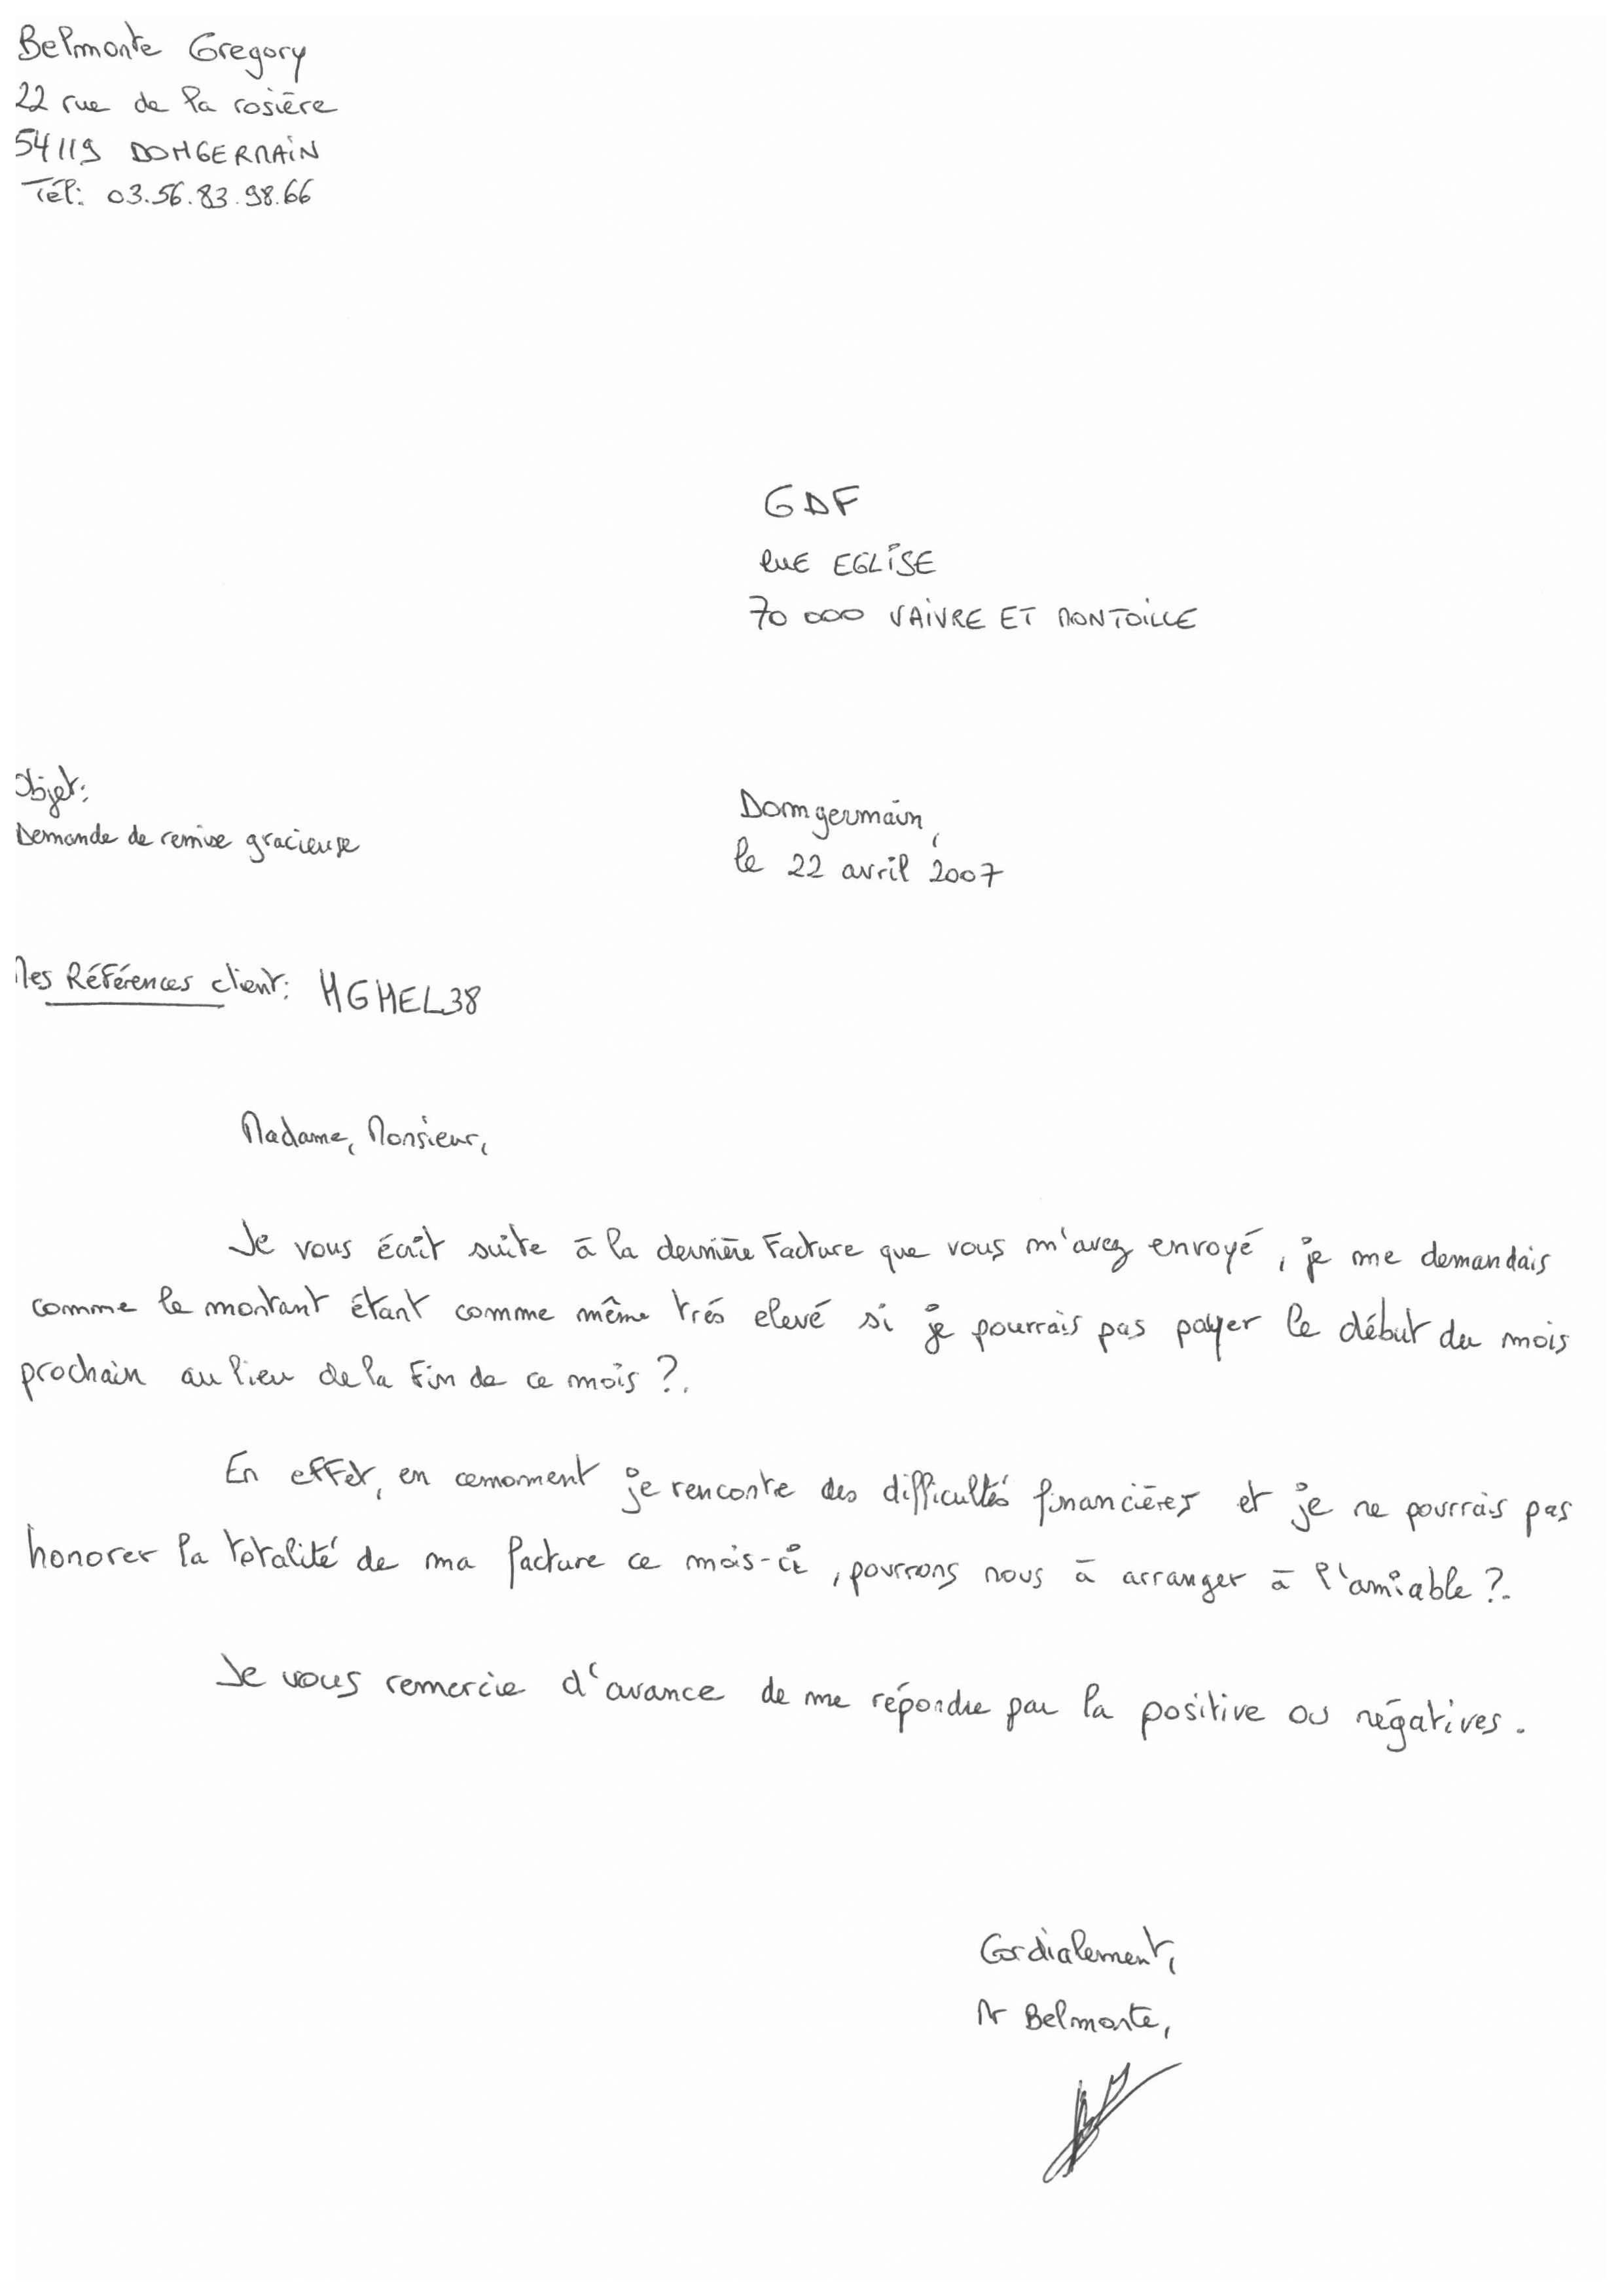 Belmonte Gregory
22 rue de la rosière
54119 DOMGERMAIN
Tél: 03.56.83.98.66
GDF
RUE EGLISE
70 000 VAIVRE ET MONTOILLE
Objet:
Demande de remise gracieuse
Domgermain,
le 22 avril 2007
Mes Références client: HGHEL38
Madame, Monsieur,
Je vous écrit suite à la dernière Facture que vous m'avez envoyé, je me demandais
comme le montant étant comme même trés elevé si je pourrais pas payer le début du mois
prochain au lieu de la Fin de ce mois ?.
En effet, en cemoment je rencontre des difficultés financières et je ne pourrais pas
honorer la totalité de ma facture ce mois-ci, pourrons nous à arranger à l'amiable ?.
Je vous remercie d'avance de me répondre par la positive ou négatives.
Cordialement,
Mr Belmonte,